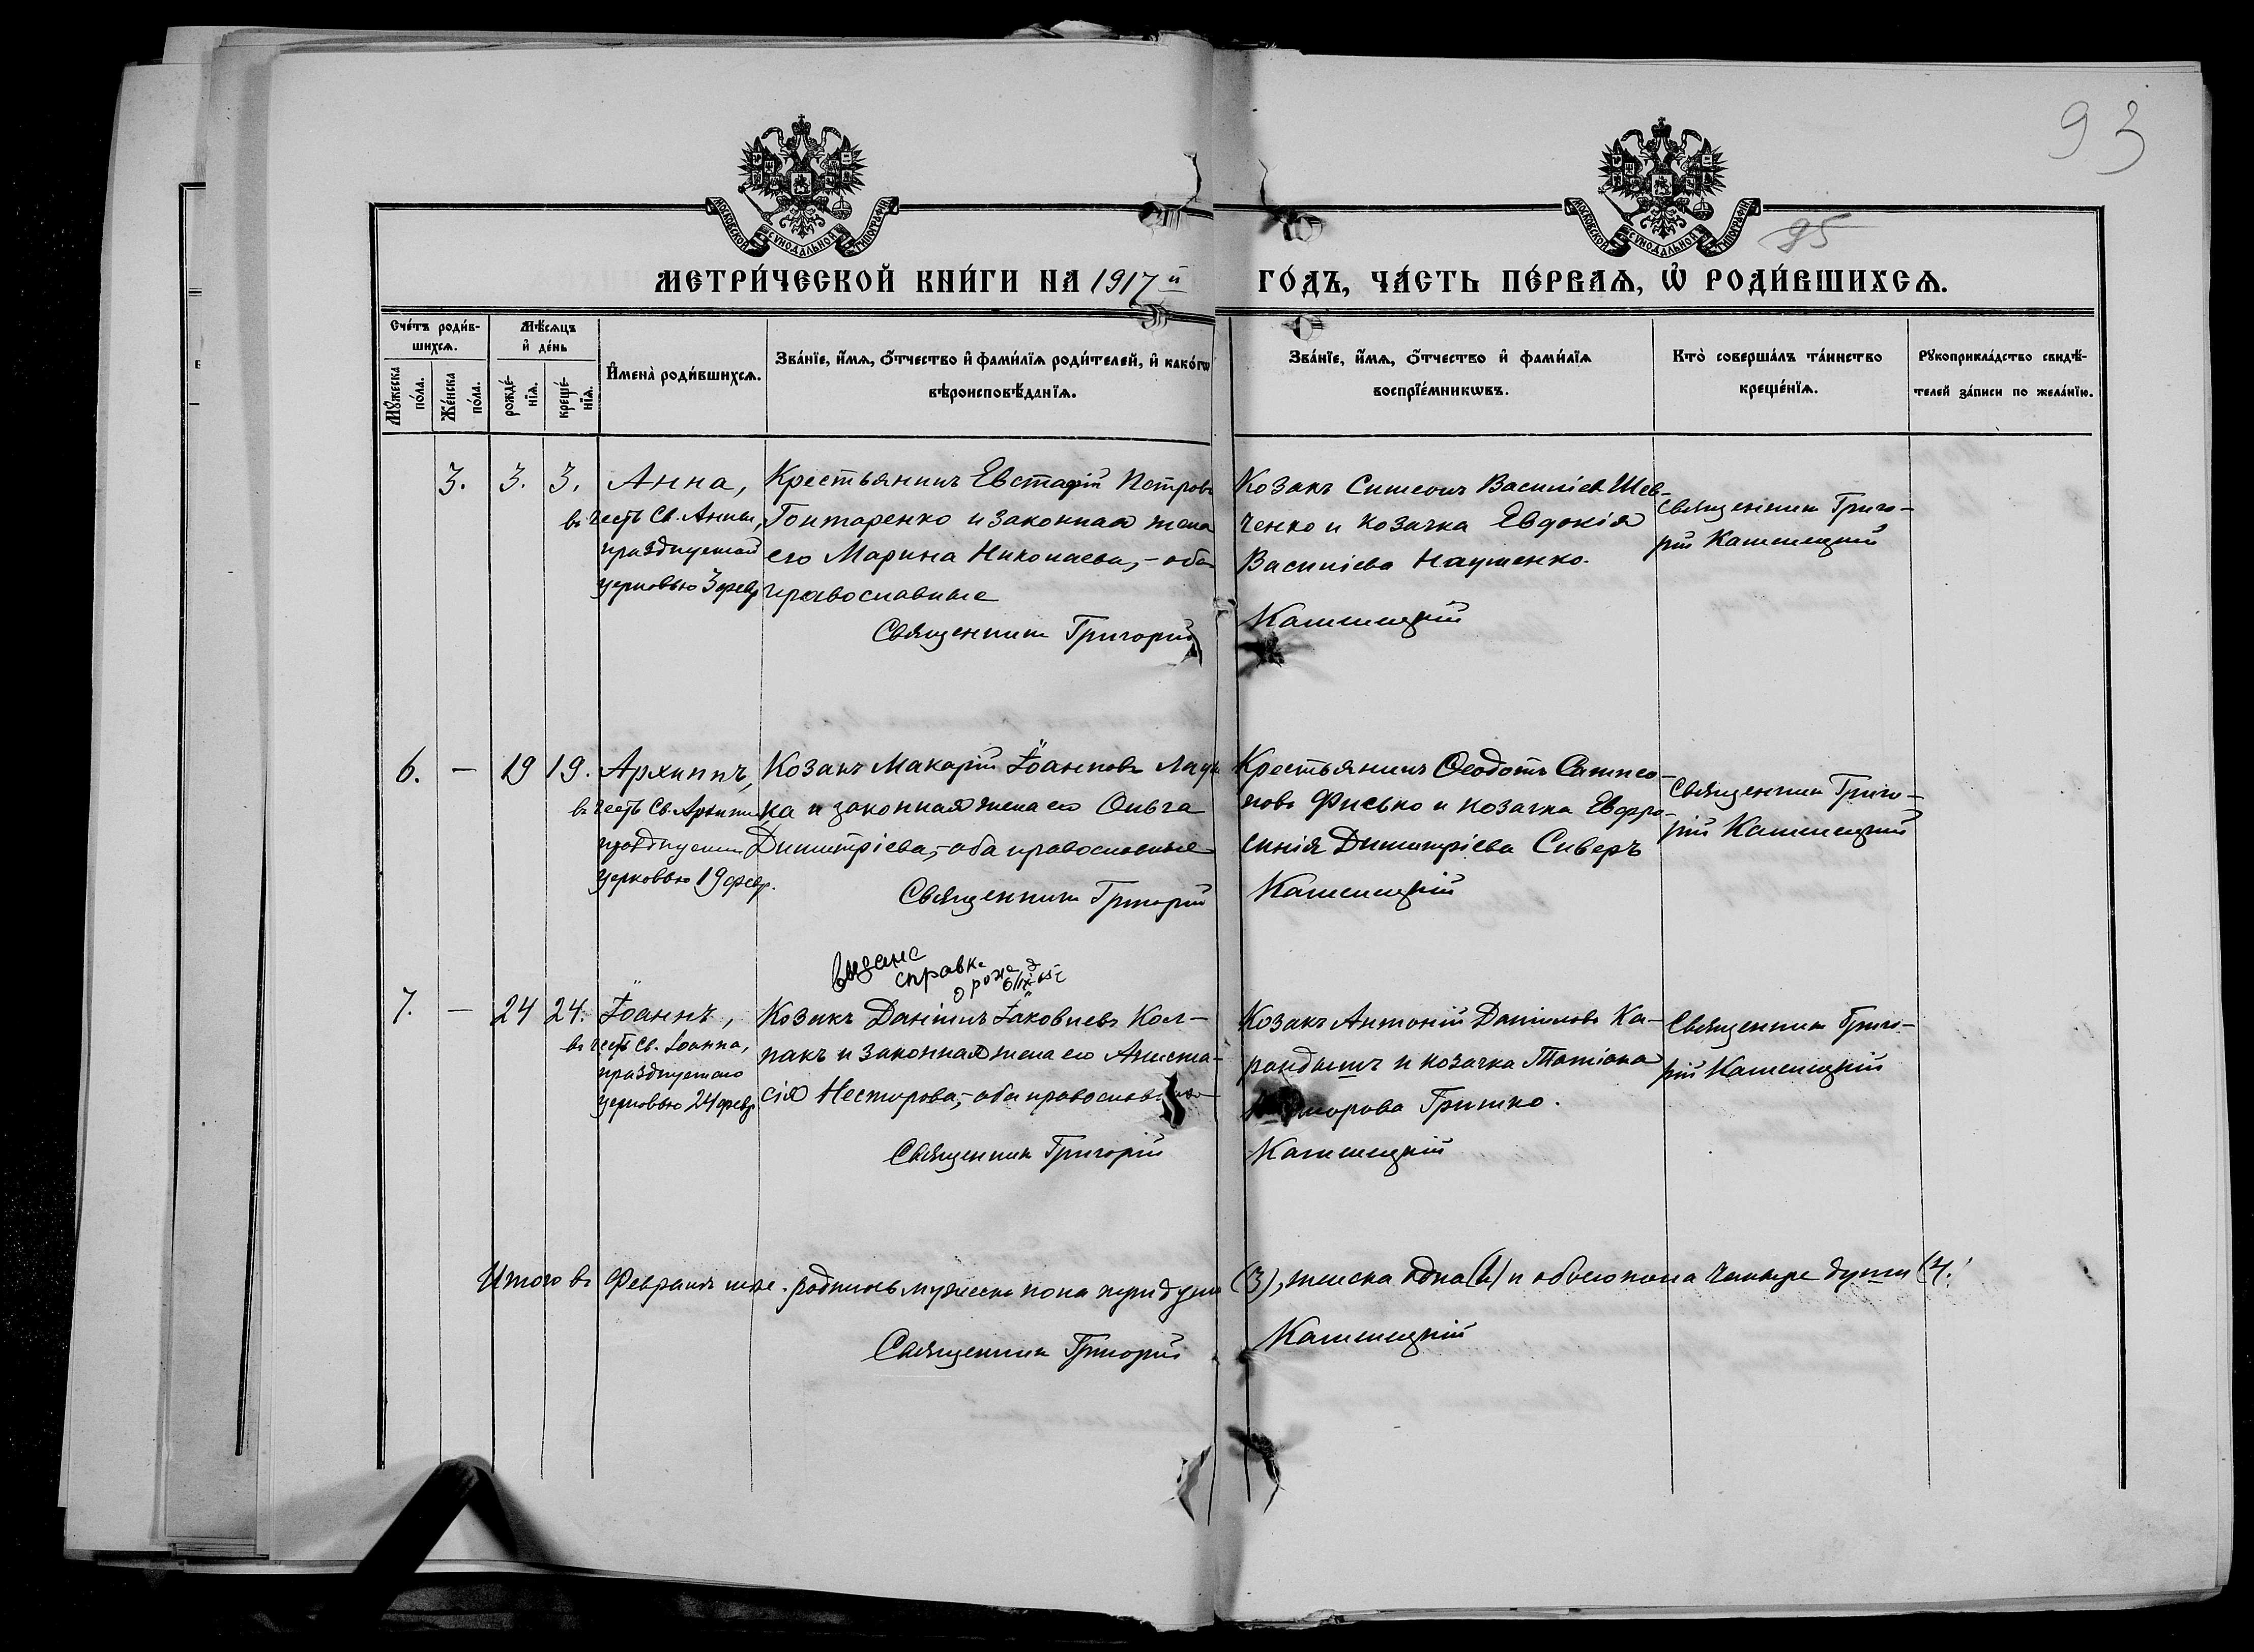 93
95
МОСКОВСКОЙ СѴНОДАЛЬНОЙ ТИПОГРАФІИ
МОСКОВСКОЙ СѴНОДАЛЬНОЙ ТИПОГРАФІИ
МЕТРИ́ЧЕСКОЙ КНИ́ГИ НА 1917 й ГО́ДЪ, ЧА́СТЬ ПЕ́РВАѦ, Ѡ РОДИ́ВШИХСѦ.
Сче́тъ роди́в-
шихсѧ.
Мꙋ́жеска по́ла.
Же́нска по́ла.
Мѣ́сѧцъ
и де́нь
рожде́-
нїѧ.
креще́-
нїѧ.
Имена̀ роди́вшихсѧ.
Зва́нїе, и́мѧ, о́тчество и фами́лїѧ роди́телей, и како́гѡ
вѣроисповѣ́данїѧ.
Зва́нїе, и́мѧ, о́тчество и фами́лїѧ
воспрїе́мникѡвъ.
Кто̀ соверша́лъ та́инство
креще́нїѧ.
Рꙋкоприкла́дство свидѣ́-
телей за́писи по жела́нїю.
3. 3. 3.
Анна,
въ честь Св. Анны,
празднуемой
церковью 3 февр
Крестьянинъ Евстафій Петровъ
Гонтаренко и законная жена
его Марина Николаева, - оба
православные
Священникъ Григорій Каменецкій
Козакъ Симеонъ Василіевъ Шев-
ченко и козачка Евдокія
Василіева Науменко.
Священникъ Григо-
рій Каменецкій
6. — 19 19.
Архиппъ,
въ честь Св. Архиппа,
празднуемаго
церковью 19 февр.
Козакъ Макарій Іоанновъ
ка и законная жена его Ольга
Димитріева, - оба православные
Священникъ Григорій Каменецкій
Крестьянинъ Ѳеодотъ Сампсо-
новъ Фисько и козачка Евфро-
синія Димитріева Сиверъ
Священникъ Григо-
рій Каменецкій
выдана
справка
о рожд
7. — 24 24.
Іоаннъ,
въ честь Св. Іоанна,
празднуемаго
церковью 24 февр
Козакъ Даніилъ Іаковлевъ Кол-
пакъ и законная жена его Анаста-
сія Несторова, - оба православные
Священникъ Григорій Каменецкій
Козакъ Антоній Даніиловъ Ка-
рандышъ и козачка Татіана
Гришко.
Священникъ Григо-
рій Каменецкій
Итого въ Февралѣ мцѣ родилось мужеска пола три души (3), женска одна (1) и обоего пола четыре души (4.)
Священникъ Григорій Каменецкій